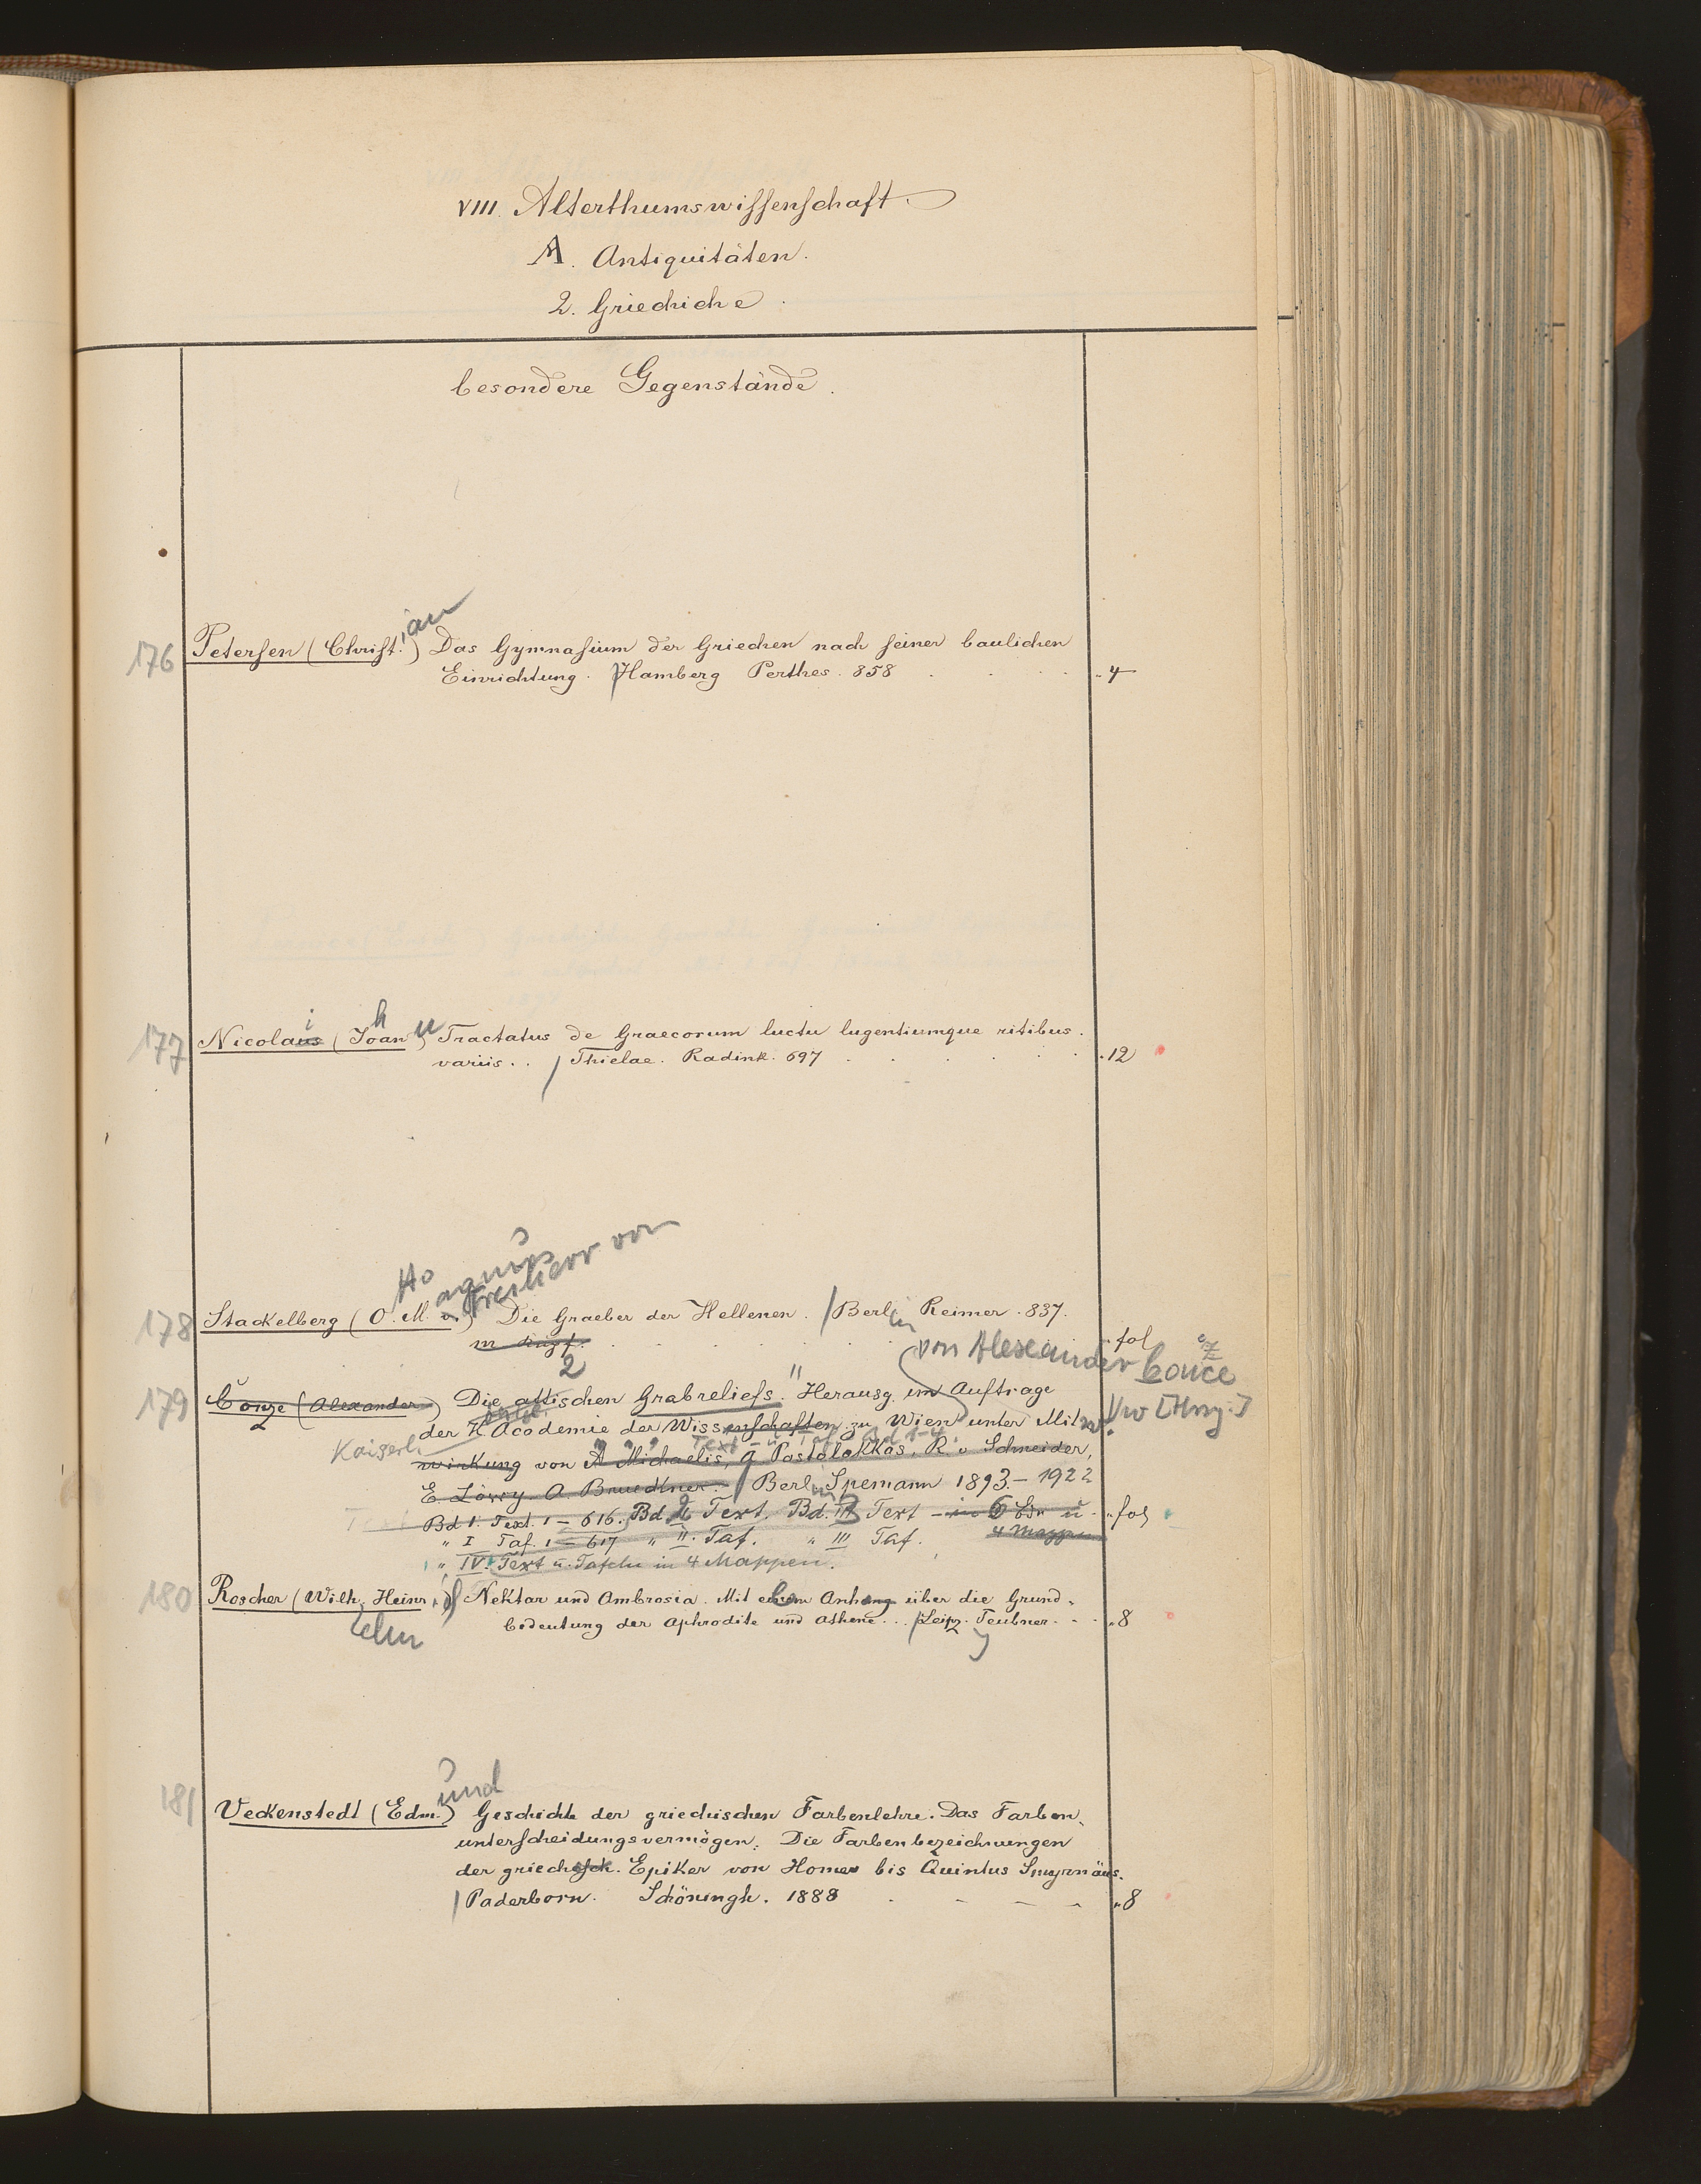 VIII. Alterthumswissenschaft
A. Antiquitäten.
2. Griechiche
besondere Gegenstände.
ian
176 Petersen (Christ.) Das Gymnasium der Griechen nach seiner baulichen
Einrichtung. Hamberg Perthes. 858 4
i h
177 Nicolaus (Joan Tractatus de Graecorum luctu lugentiumque ritibus.
variis.. Thielae. Radink. 697 12
agnus
Freiherr von
178 Stackelberg (O. M. v.) Die Graeber der Hellenen. Berlin Reimer. 837.
fol
von Alexander Conce
2
179 Conze (Alexander) Die attischen Grabreliefs. Herausg. im Auftrage
Vw [Hrsg.]
der K Academie der Wissenschaften zu Wien unter Mit
Kaiserl.
Text u Taf Bd 1-4
wirkung von A Michaelis, A Postolakkas, R. v Schneider,
E Löwy A Brueckner. Berlin Spemann 1893 - 1922
Bd 1. Text. 1 - 616. Bd II Text. Bd. III Text - in 6 Bdn u. fol
4 Mappen
" I Taf. 1 - 617 " II. Taf. " III Taf.
" IV. Text u. Tafeln in 4 Mappen.
180 Roscher (Wilh. Heinr.) Nektar und Ambrosia. Mit einem Anhang über die Grund-
elm
bedeutung der Aphrodite und Athene... Leipz. Teubner. 8
g
und
181 Veckenstedt (Edm.) Geschichte der griechischen Farbenlehre. Das Farben-
unterscheidungsvermögen. Die Farbenbezeichnungen
der griechisch. Epiker von Homer bis Quintus Smyrnäus.
Paderborn. Schöningh. 1888 8